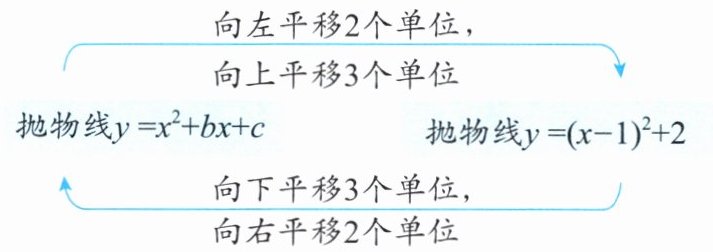 向左平移2个单位，
向上平移3个单位
抛物线y=x²+bx+c 抛物线y=(x−1)²+2
向下平移3个单位，
向右平移2个单位